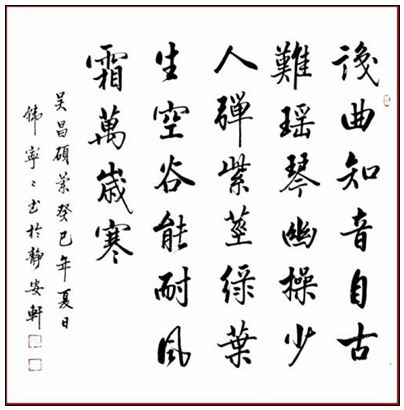 識曲知音自古
難瑶琴幽操少
人彈紫莖綠葉
生空谷能耐風
霜萬歲寒
吴昌碩 癸巳年夏日
寧〻书於靜安軒